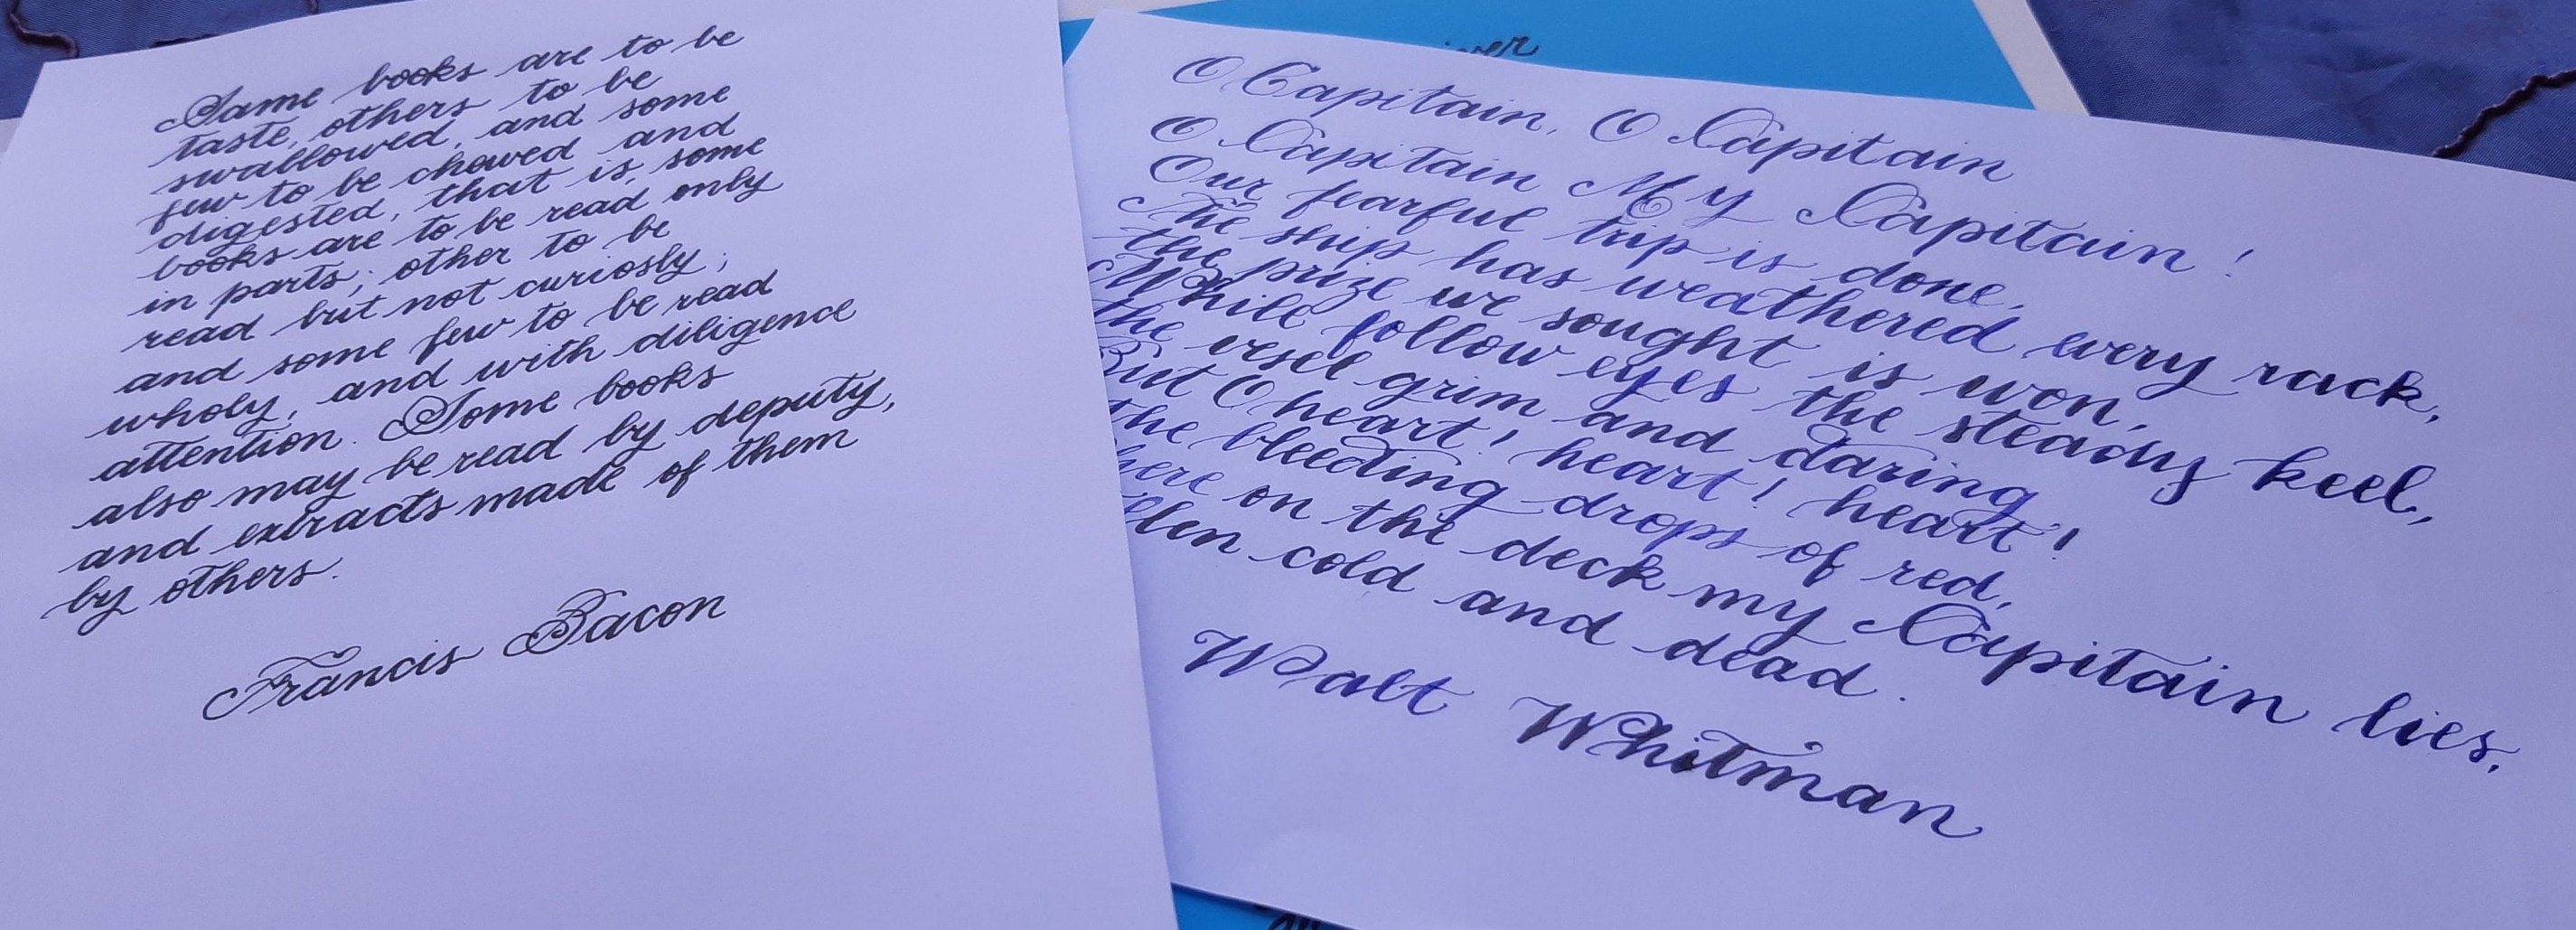 Some books are to be
taste, others to be
swallowed, and some
few to be chowed and
digested, that is, some
books are to be read only
in parts; other to be
read but not curiosly;
and some few to be read
wholy, and with diligence
attention. Some books
also may be read by deputy,
and extracts made of them
by others.
Francis Bacon
O Capitain, O Capitain
O Capitain My Capitain!
Our fearful trip is done,
The ship has weathered every rack,
the prize we sought is won,
While follow eyes the steady keel,
the vesel grim and daring
But O heart! heart! heart!
the bleeding drops of red,
here on the deck my Capitain lies,
cold and dead.
Walt Whitman